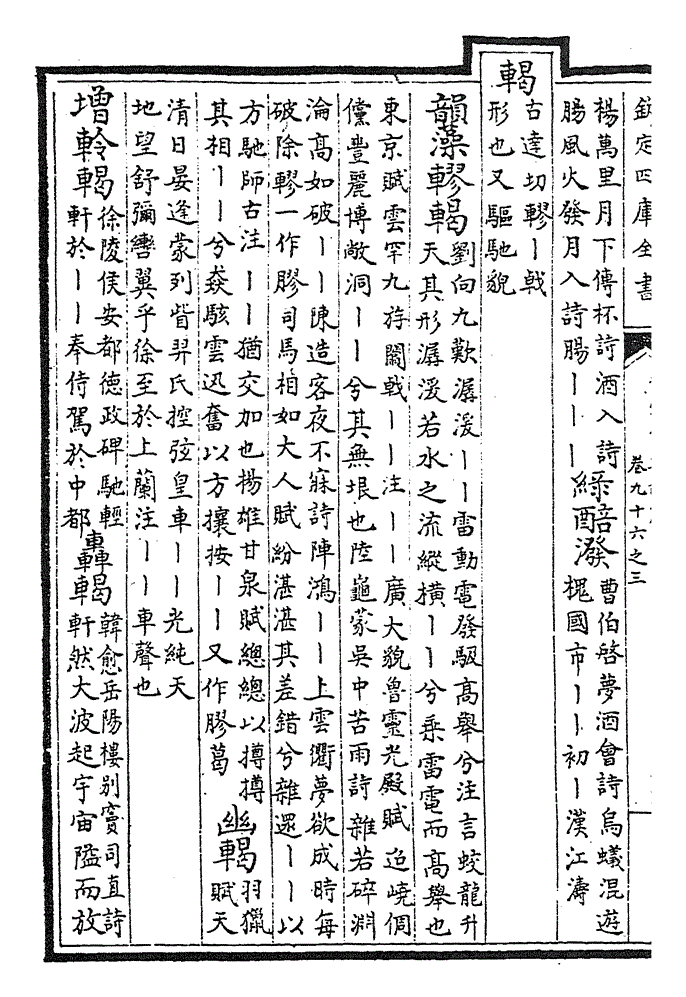 欽定四庫全書
卷九十六之三
楊萬里月下傳杯詩酒入詩
腸風火發月入詩腸丨丨丨
綠醅潑
曹伯啓夢酒會詩烏蟻混遊
槐國市丨丨初丨漢江濤
轕
古達切轇丨㦸
形也又驅馳貌
韻藻轇轕
劉向九歎潺湲丨丨雷動電發馺高舉兮注言蛟龍升
天其形潺湲若水之流縱橫丨丨兮乘雷電而高舉也
東京賦雲罕九斿闟㦸丨丨注丨丨廣大貌魯靈光殿賦迢嶢倜
儻豐麗博敞洞丨丨兮其無垠也陸龜蒙吳中苦雨詩雜若碎淵
淪高如破丨丨陳造客夜不寐詩陣鴻丨丨上雲衢夢欲成時每
破除轇一作膠司馬相如大人賦紛湛湛其差錯兮雜遝丨丨以
方馳師古注丨丨猶交加也揚雄甘泉賦總總以撙撙
其相丨丨兮猋駭雲迅奮以方攘按丨丨又作膠葛
幽轕
羽獵
賦天
清日晏逢蒙列眥羿氏控弦皇車丨丨光純天
地望舒彌轡翼乎徐至於上蘭注丨丨車聲也
增軨轕
徐陵侯安都德政碑馳輕
軒於丨丨奉侍駕於中都
轟轕
韓愈岳陽樓别竇司直詩
軒然大波起宇宙隘而放